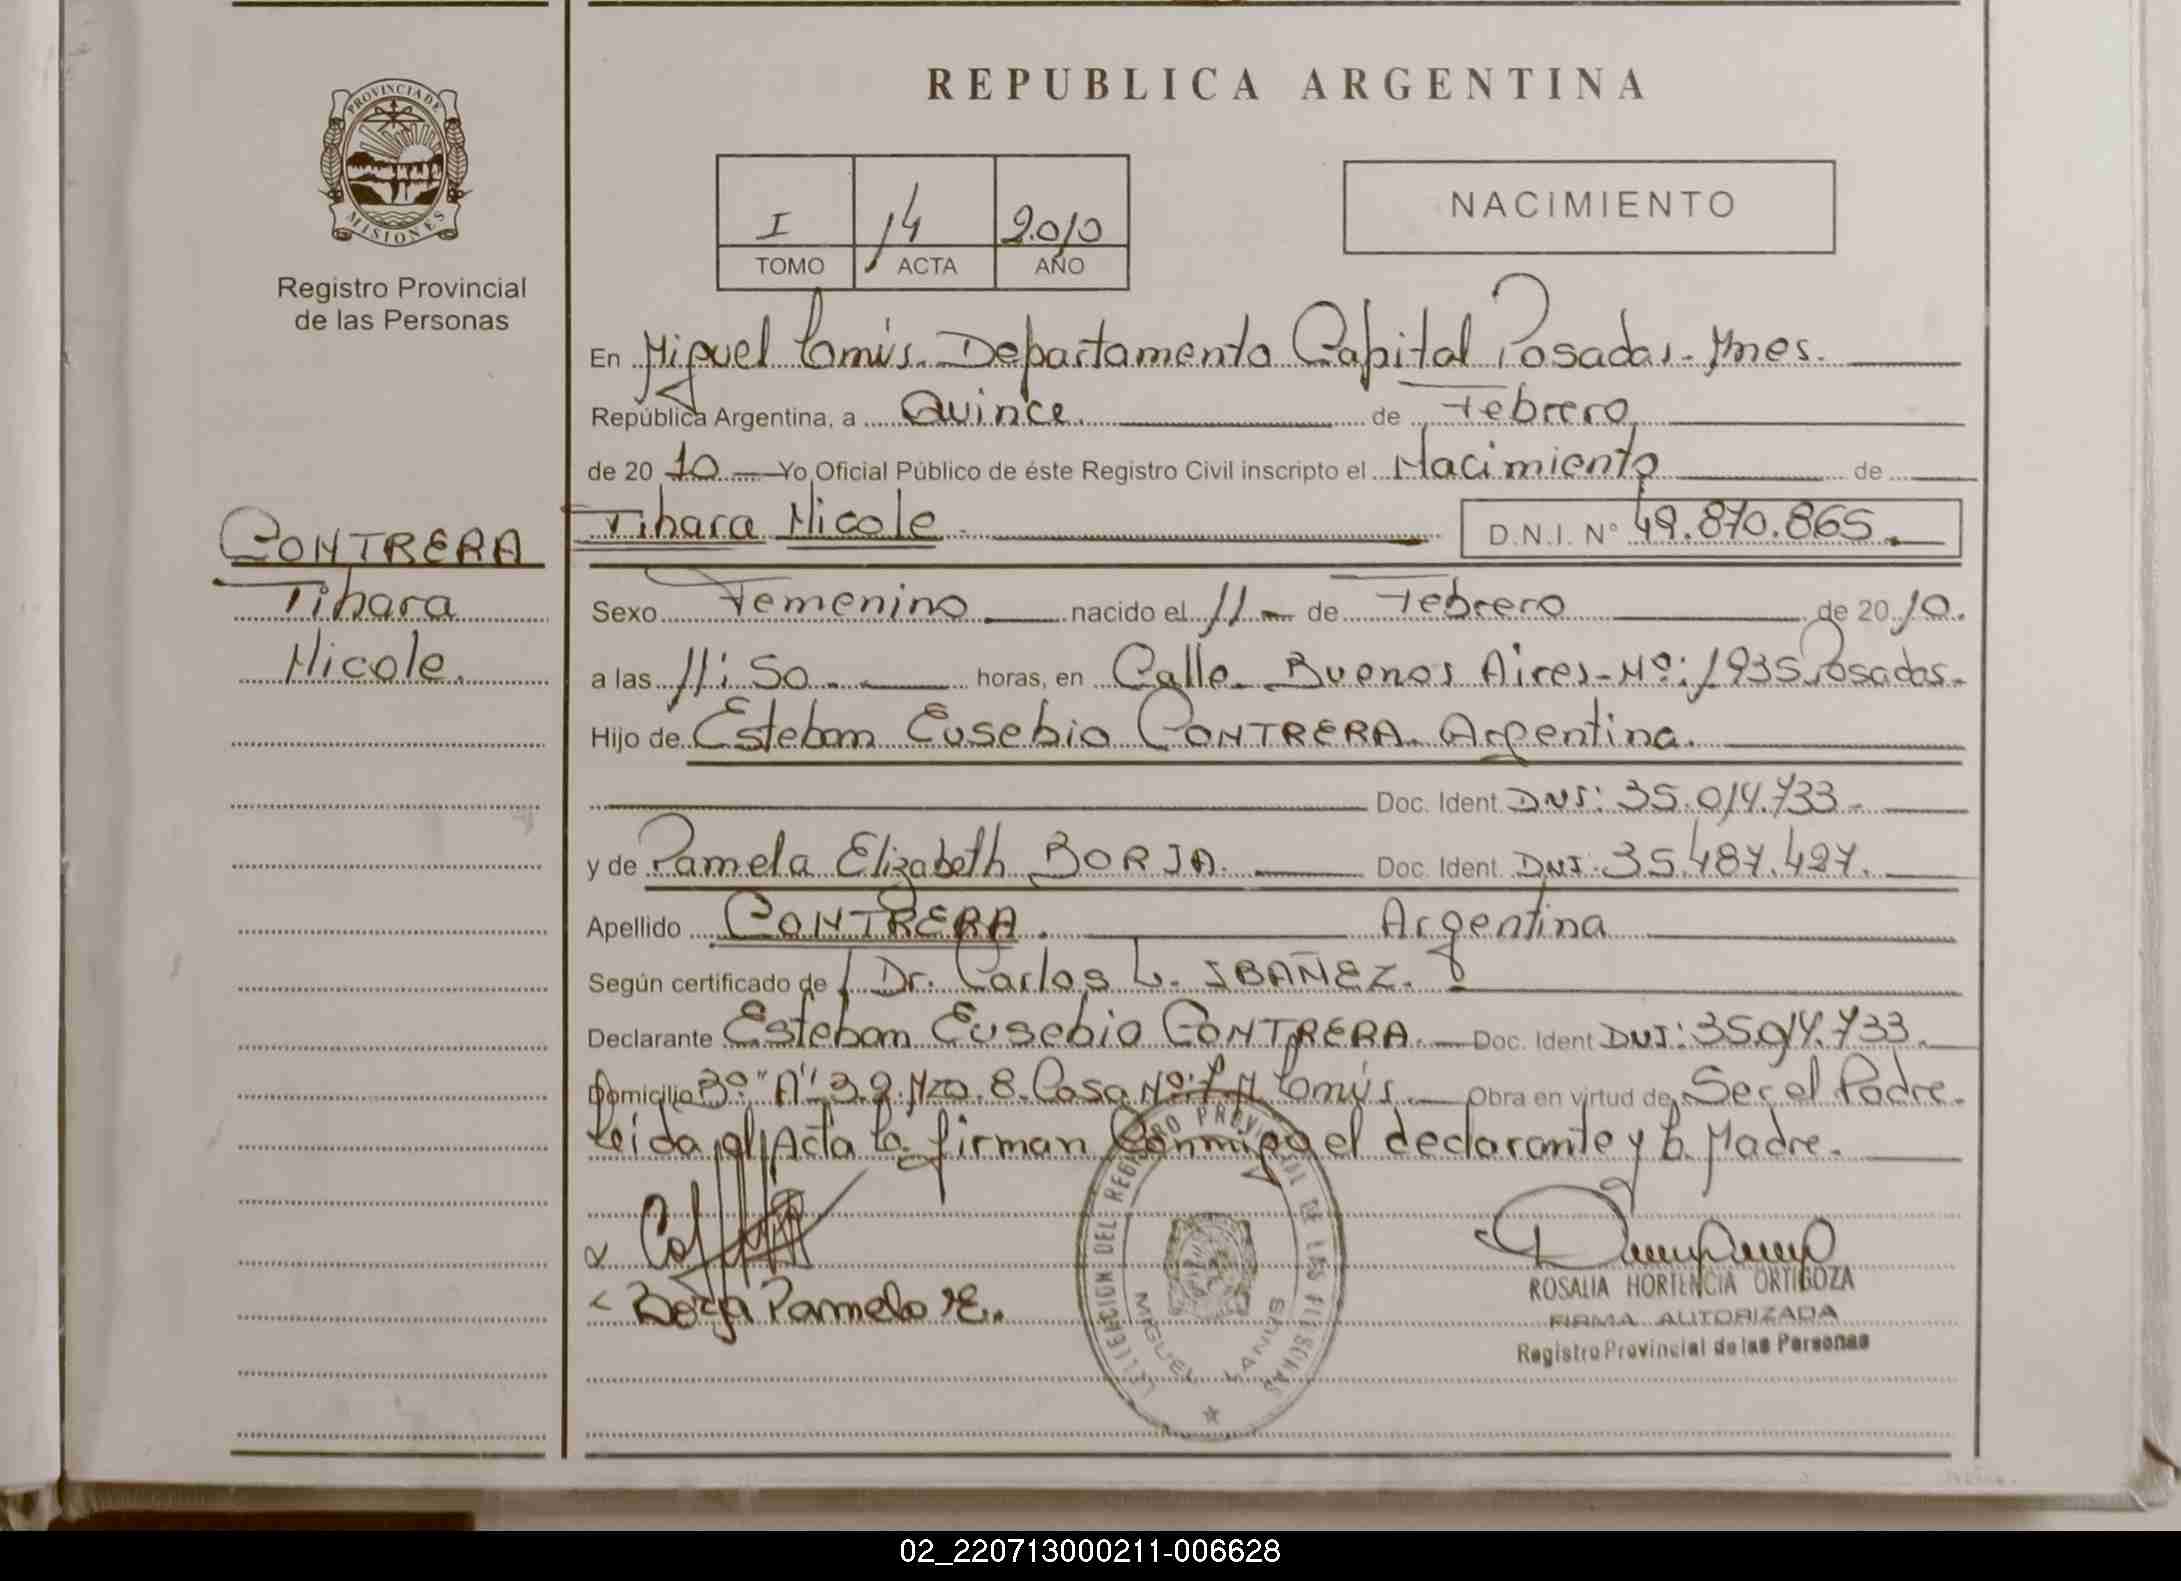 REPUBLICA ARGENTINA
PROVINCIA DE
MISIONES
Registro Provincial
de las Personas
I 14 2010
TOMO ACTA AÑO
NACIMIENTO
En Miguel Lanús. Departamento Capital Posadas. Mnes.
República Argentina, a Quince de Febrero
de 20 10 Yo Oficial Público de éste Registro Civil inscripto el Nacimiento de
Tihara Nicole. D.N.I. N° 49.870.865.
CONTRERA
Tihara
Nicole.
Sexo Femenino nacido el 11 de Febrero de 20 10.
a las 11:50 horas, en Calle Buenos Aires-Nº: 1935 Posadas.
Hijo de Esteban Eusebio CONTRERA. Argentina.
Doc. Ident. DNI: 35.014.733
y de Pamela Elizabeth BORJA. Doc. Ident. DNI: 35.487.427.
Apellido CONTRERA. Argentina
Según certificado de Dr. Carlos L. IBAÑEZ.
Declarante Esteban Eusebio CONTRERA. Doc. Ident DNI: 35.014.733.
Domicilio Bº "A" 3.2. Mza. 8. Casa Nº: 7. M. Lanús. Obra en virtud de Ser el Padre.
Leída el Acta la firman Conmigo el declarante y la Madre.
Borja Pamela E.
DELEGACION DEL REGISTRO PROVINCIAL DE LAS PERSONAS
MIGUEL LANUS
ROSALIA HORTENCIA ORTIGOZA
FIRMA AUTORIZADA
Registro Provincial de las Personas
02_220713000211-006628